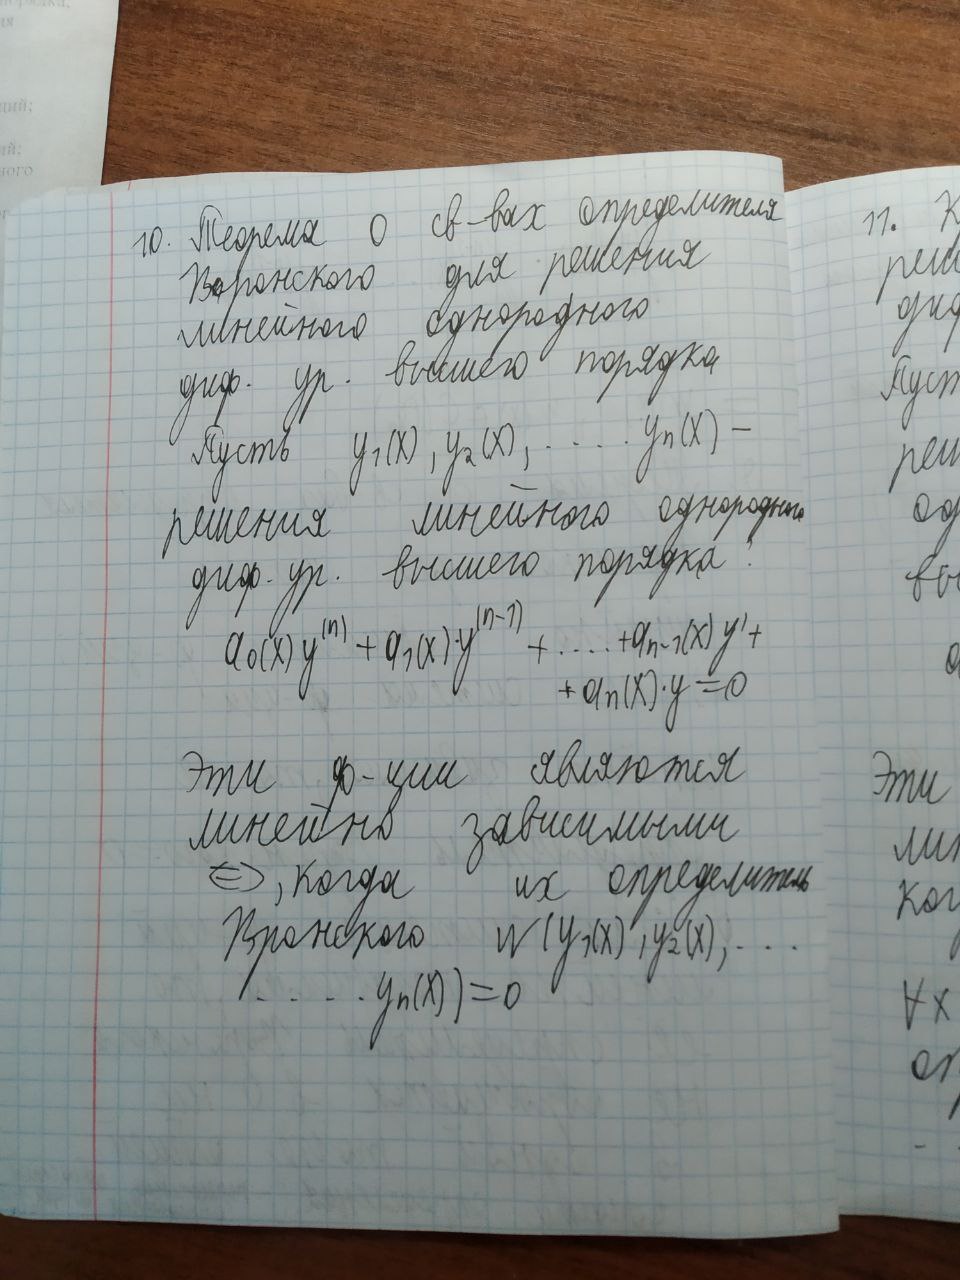 орядка,
ия
ций;
ий:
ного
10. Теорема о св-вах определителя
Вронского для решения
линейного однородного
диф. ур. высшего порядка
Пусть y₁(x), y₂(x), ..... yₙ(x) –
решения линейного однородного
диф. ур. высшего порядка:
a₀(x)y⁽ⁿ⁾ + a₁(x)·y⁽ⁿ⁻¹⁾ + .... + aₙ₋₁(x)y' +
+ aₙ(x)·y = 0
Эти ф-ции являются
линейно зависимыми
⇔, когда их определитель
Вронского W(y₁(x), y₂(x), ....
..... yₙ(x)) = 0
11. К
реш
диф
Пуст
реш
од
выс
a
Эти
лин
ког
∀x
оп